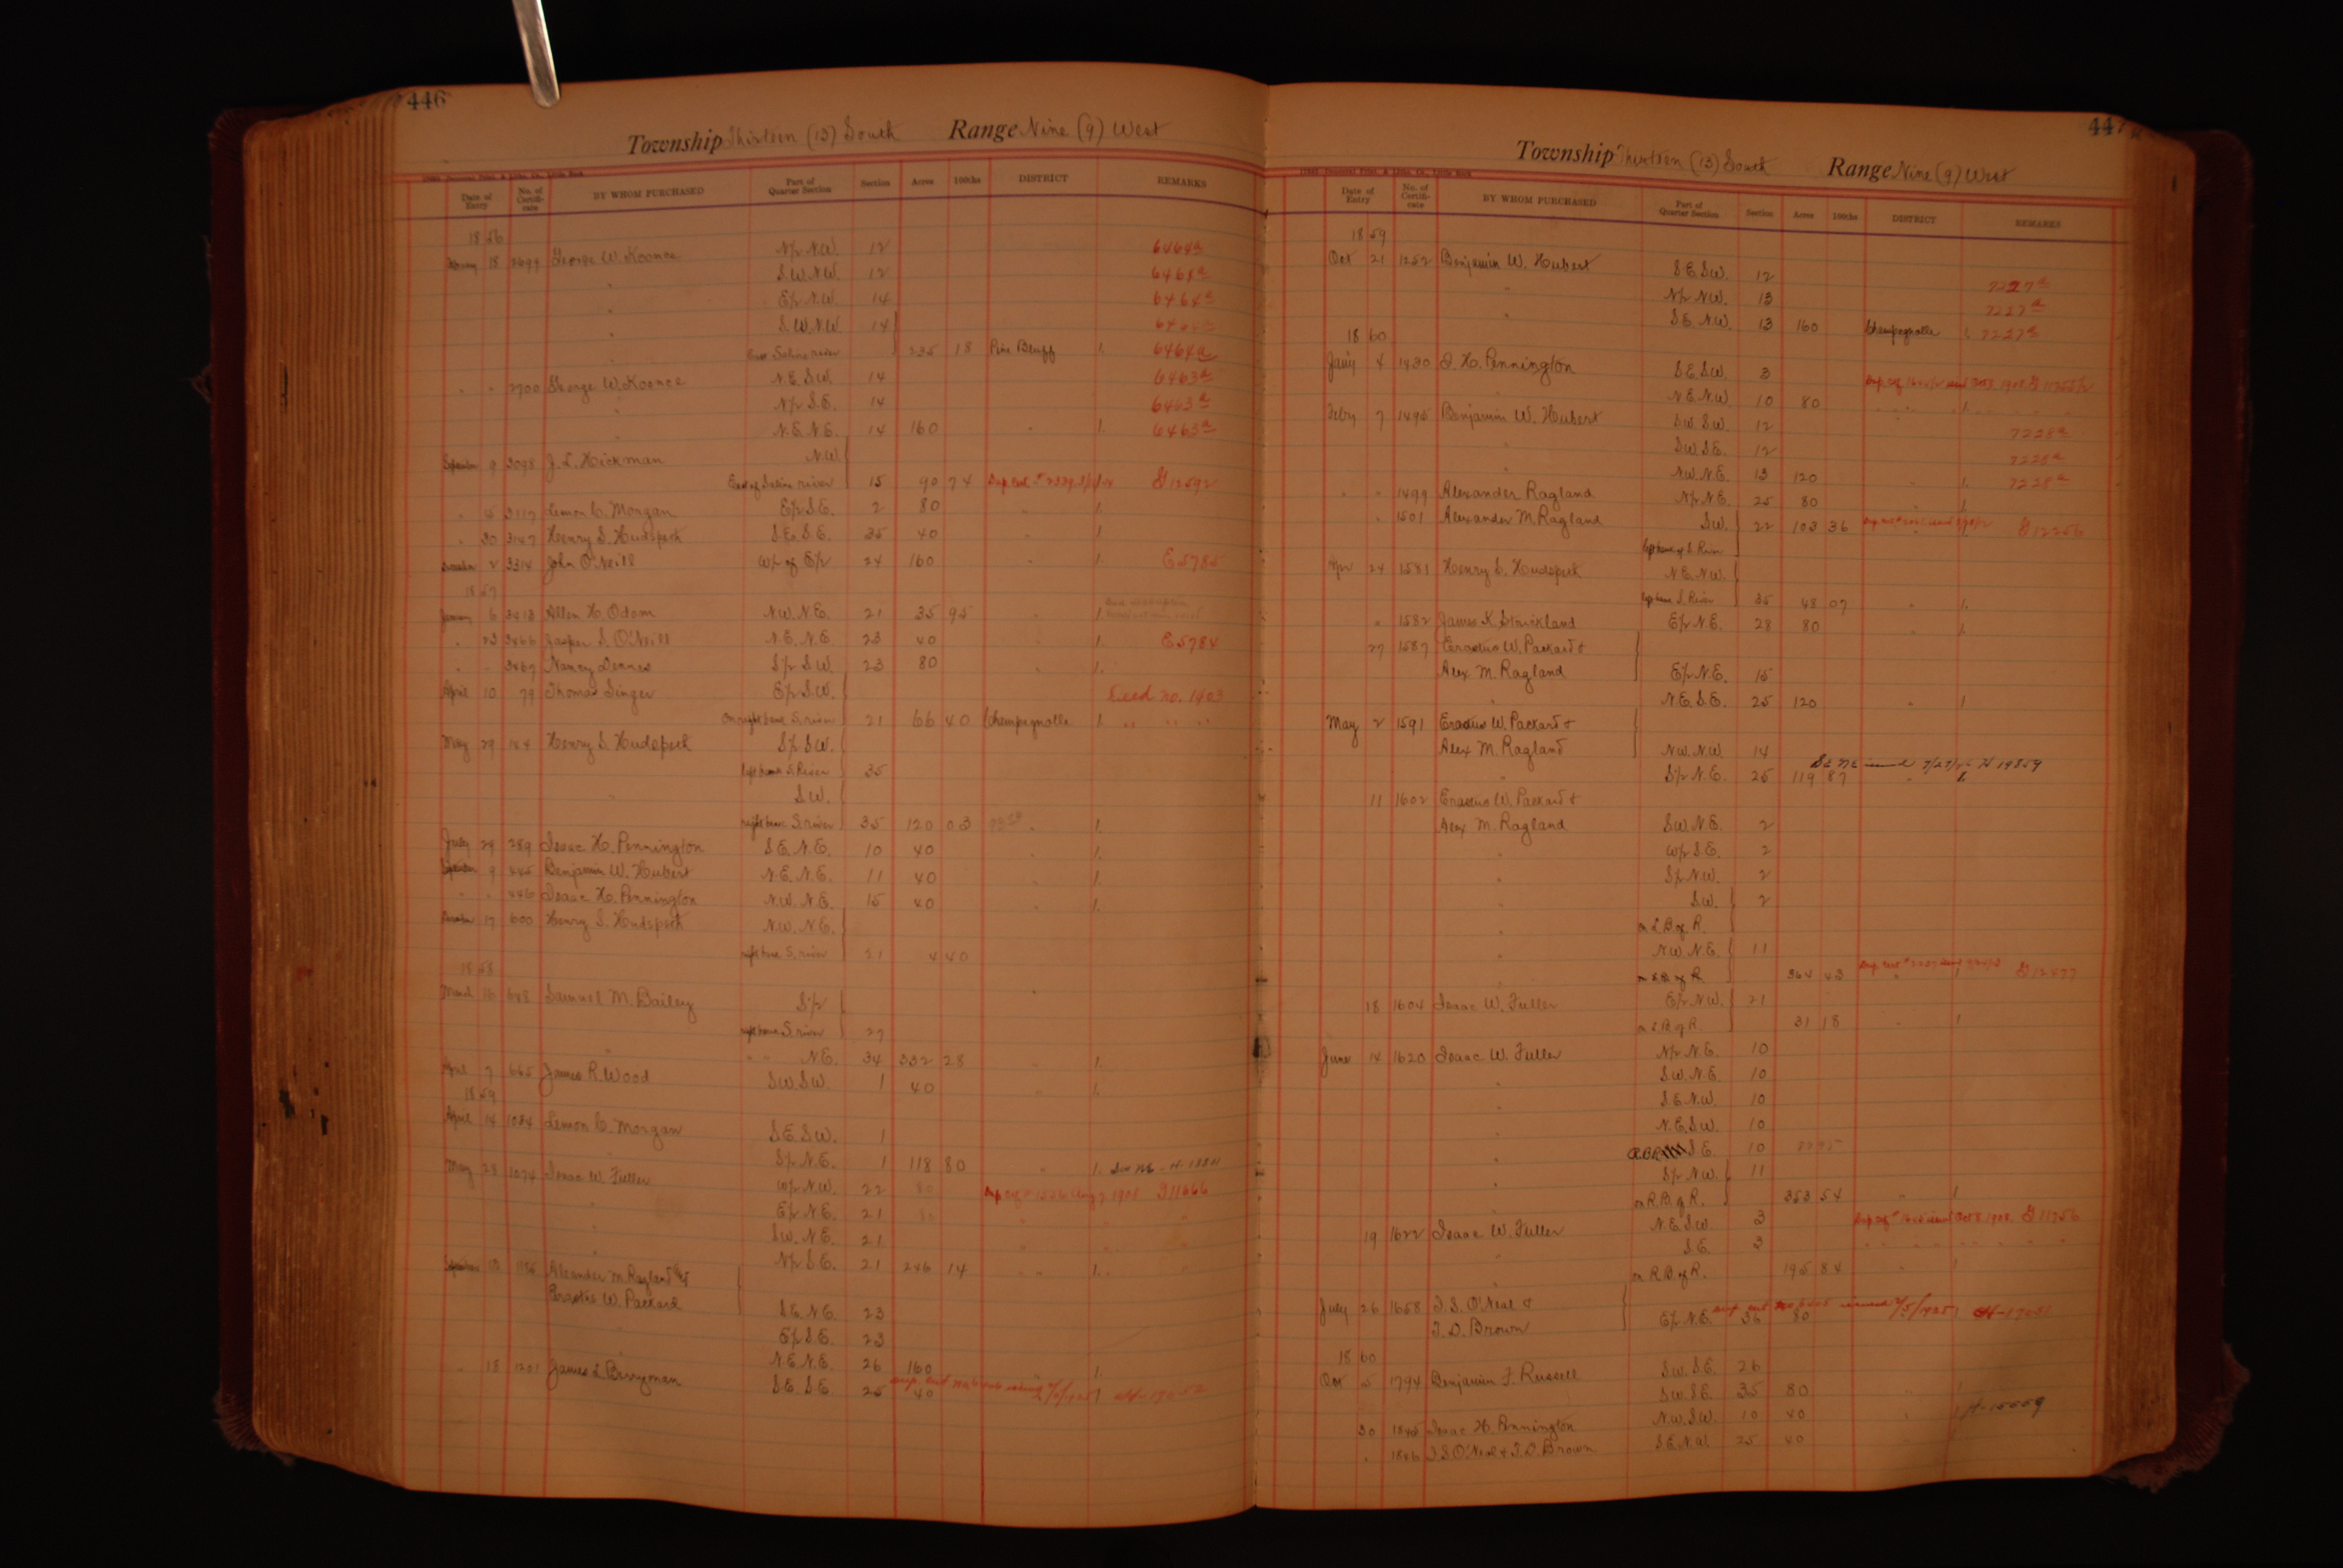 446
Township Thirteen (13) South Range Nine (9) West
Date of Entry No. of Certifi-cate BY WHOM PURCHASED Part of Quarter Section Section Acres 100ths DISTRICT REMARKS
1856
18 2699 George W. Koonce N/2 N.W. 12 6464a
" S.W. N.W. 12 6464a
" E/2 N.W. 14 6464a
" S.W. N.W. 14
East Saline river 235 18 Pine Bluff 1. 6464a
" " 2700 George W. Koonce N.E. S.W. 14 6463a
" N/2 S.E. 14 6463a
" N.E. N.E. 14 160 " 1. 6463a
September 9 3098 J. L. Hickman N.W.
East of Saline river 15 90 74 G 12592
" 15 3117 Lemon C. Morgan E/2 S.E. 2 80 " 1.
" 30 3147 Henry S. Hudspeth S.E. S.E. 35 40 " 1
December 2 3314 John O'Neill W/2 of E/2 24 160 " 1. E 5785
1857
January 6 3413 Allen H. Odom N.W. N.E. 21 35 95 " 1.
" 23 3466 Jasper S. O'Neill N.E. N.E 23 40 1 E 5784
" " 3467 Nancy S/2 S.W. 23 80 " 1.
April 10 79 Thomas Singer E/2 S.W. Deed no. 1403
On right bank S. river 21 66 40 Champagnolle 1. " " "
May 29 164 Henry S. Hudspeth S/2 S.W.
left bank S. River 35
" S.W.
right bank S. river 35 120 03 " 1.
July 29 289 Isaac H. Pennington S.E. N.E. 10 40 " 1.
September 9 445 Benjamin W. Hubert N.E. N.E. 11 40 " 1.
" " 446 Isaac H. Pennington N.W. N.E. 15 40 " 1.
December 17 600 Henry S. Hudspeth N.W. N.E.
right bank S. river 21 4 40
1858
March 16 648 Samuel M. Bailey S/2
right bank S. river 27
" " " N.E. 34 332 28 " 1.
April 7 665 James R. Wood S.W. S.W. 1 40 " 1.
1859
April 14 1034 Lemon C. Morgan S.E. S.W. 1
" S/2 N.E. 1 118 80 " 1.
May 28 1074 Isaac W. Fuller W/2 N.W. 22 80 G 11666
" E/2 N.E. 21 " " "
" S.W. N.E. 21 " " "
" N/2 S.E. 21 246 14 " " 1. "
September Alexander M. Ragland and
Erastus W. Packard S.E. N.E. 23
" E/2 S.E. 23
" N.E. N.E. 26 160 " 1.
" 18 1201 James L. Berryman S.E. S.E. 25 40 1 H-17052
447
Township Thirteen (13) South Range Nine (9) West
Date of Entry No. of Certifi-cate BY WHOM PURCHASED Part of Quarter Section Section Acres 100ths DISTRICT REMARKS
1859
Oct 21 1252 Benjamin W. Hubert S.E. S.W. 12 7227a
" N/2 N.W. 13 7227a
" S.E. N.W. 13 160 Champagnolle 1. 7227a
1860
Jany 4 1430 I. H. Pennington S.E. S.W. 3
" N.E. N.W. 10 80 " 1.
Feby 7 1495 Benjamin W. Hubert S.W. S.W. 12 7228a
" S.W. S.E. 12 7228a
" N.W. N.E. 13 120 " 1. 7228a
" " 1499 Alexander Ragland N/2 N.E. 25 80 " 1.
" 1501 Alexander M. Ragland S.W. 22 103 36 " 1. G 12256
left bank of S. River
Apr 24 1581 Henry S. Hudspeth N.E. N.W.
left bank S. River 35 48 07 " 1.
" 1582 James K. Strickland E/2 N.E. 28 80 " 1.
27 1587 Erastus W. Packard &
Alex M. Ragland E/2 N.E. 15
" N.E. S.E. 25 120 " 1
May 2 1591 Erastus W. Packard &
Alex M. Ragland N.W. N.W. 14
H 19859
" S/2 N.E. 25 119 87 " 1.
11 1602 Erastus W. Packard &
Alex M. Ragland S.W. N.E. 2
" W/2 S.E. 2
" S/2 N.W. 2
" S.W. 2
" on L B of R.
" N.W. N.E. 11
" 364 43 " 1 G 12477
18 1604 Isaac W. Fuller E/2 N.W. 21
on L.B. of R. 31 18 " 1
June 14 1620 Isaac W. Fuller N/2 N.E. 10
" S.W. N.E. 10
" S.E. N.W. 10
" N.E. S.W. 10
" S.E. 10
" S/2 N.W. 11
" on R.B. of R. 353 54 " 1
19 1622 Isaac W. Fuller N.E. S.W. 3 G 11756
" S.E. 3
" on R.B. of R. 195 84 " 1
July 26 1658 I. S. O'Neal &
T. D. Brown E/2 N.E. 36 80 1 H-17051
1860
Oct 5 1794 Benjamin F. Russell S.W. S.E. 26
S.W. S.E. 35 80 " 1
30 1845 Isaac H. Pennington N.W. S.W. 10 40 " 1 H-15559
" 1846 I. S. O'Neal & T. D. Brown S.E. N.W. 25 40